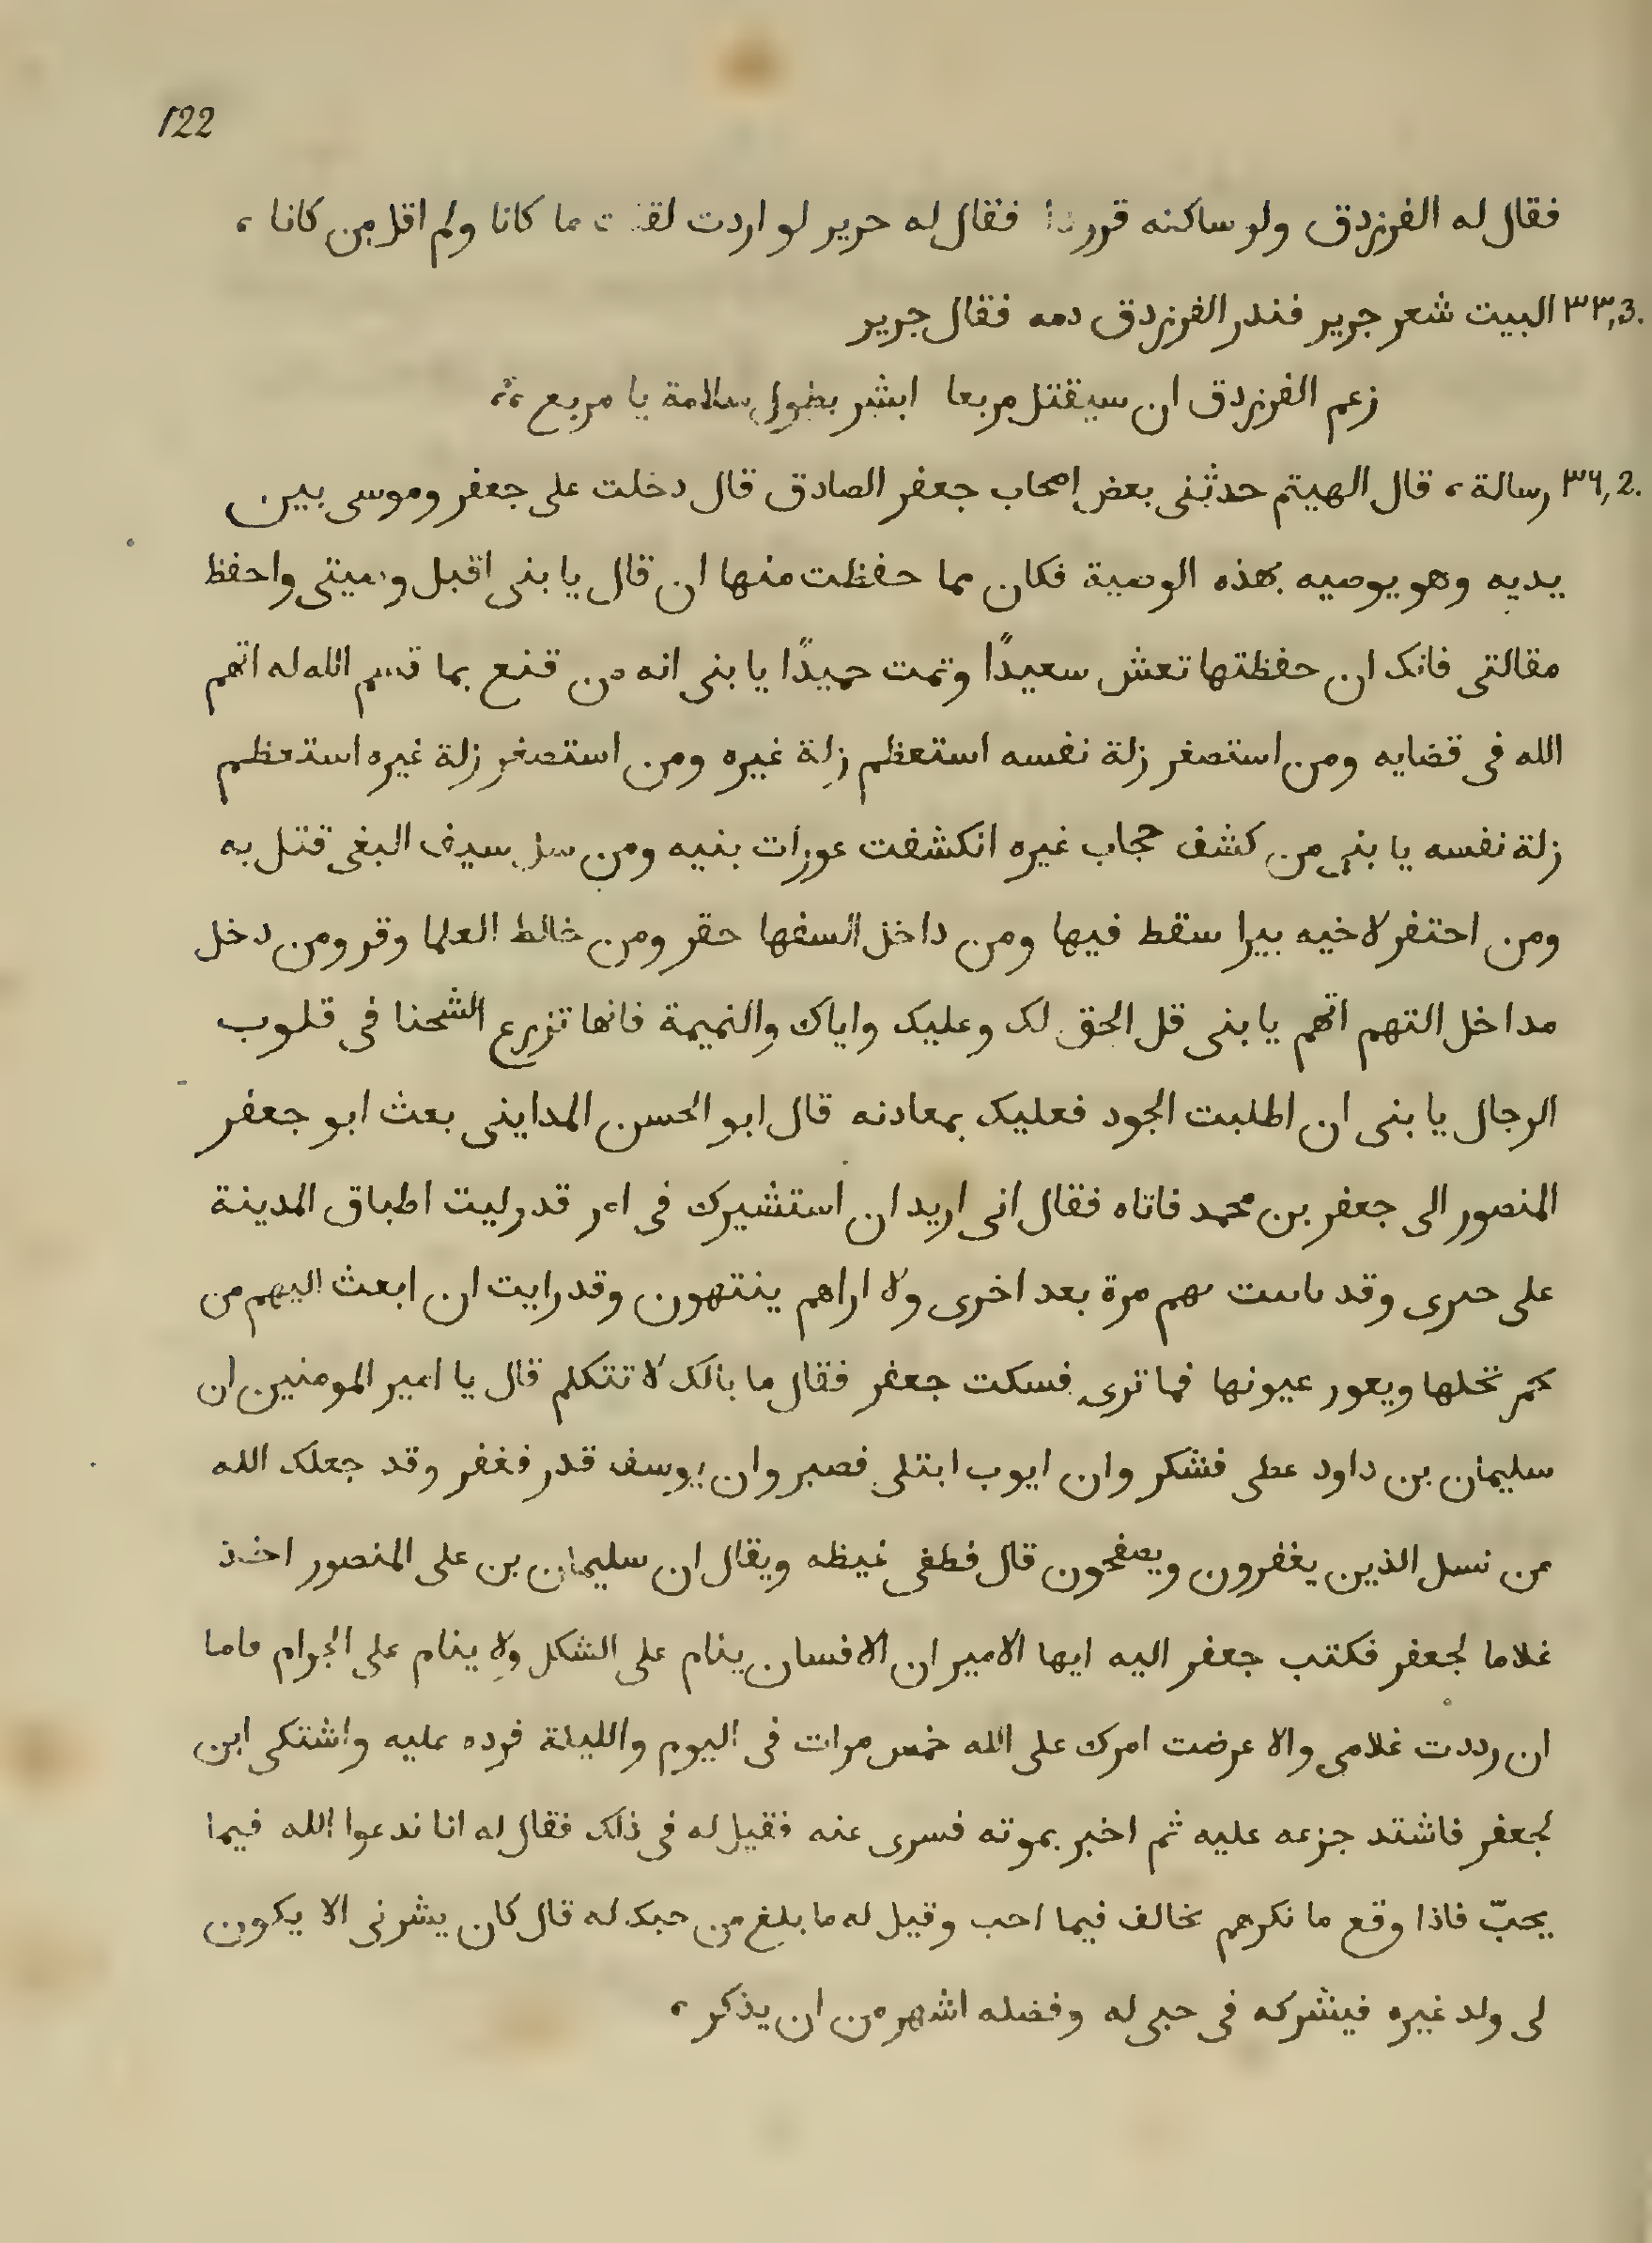 122
فقال له الفرزدق ولو ساكنه قرودا فقال له جرير لو اردت لقلت ما كانا ولم اقل من كانا ،
٣٣,3. البيت شعر جرير فنذر الفرزدق دمه فقال جرير
زعم الفرزدق ان سيقتل مربعا ابشر بطول سلامة يا مربع ،،
٣٤,2. رسالة ، قال الهيتم حدثنى بعض اصحاب جعفر الصادق قال دخلت على جعفر وموسى بين
يديه وهو يوصيه بهذه الوصية فكان مما حفظت منها ان قال يا بنى اقبل وصيتى واحفظ
مقالتى فانك ان حفظتها تعش سعيدًا وتمت حميدًا يا بنى انه من قنع بما قسم الله له اتهم
الله فى قضايه ومن استصغر زلة نفسه استعظم زلة غيره ومن استصغر زلة غيره استعظم
زلة نفسه يا بنى من كشف حجاب غيره انكشفت عورات بنيه ومن سل سيف البغى قتل به
ومن احتفر لاخيه بيرا سقط فيها ومن داخل السفها حقر ومن خالط العلما وقر ومن دخل
مداخل التهم اتهم يا بنى قل الحق لك وعليك واياك والنميمة فانها تزرع الشحنا فى قلوب
الرجال يا بنى ان اطلبت الجود فعليك بمعادنه قال ابو الحسن المداينى بعث ابو جعفر
المنصور الى جعفر بن محمد فاتاه فقال انى اريد ان استشيرك فى امر قد رليت اطباق المدينة
على حرى وقد ىاىىت ىهم مرة بعد اخرى ولا اراهم ينتهون وقد رايت ان ابعث اليهم من
يحمر نخلها ويعور عيونها فما ترى فسكت جعفر فقال ما بالك لا تتكلم قال يا امير المومنين ان
سليمان بن داود عطى فشكر وان ايوب ابتلى فصبر وان يوسف قدر فغفر وقد جعلك الله
من نسل الذين يغفرون ويصفحون قال فطفى غيظه ويقال ان سليمان بن على المنصور اخذ
غلاما لجعفر فكتب جعفر اليه ايها الامير ان الافسان ينام على الشكل ولا ينام على الجرام ڡاما
ان رددت غلامى والا عرضت امرك على الله خمس مرات فى اليوم والليلة فرده عليه واشتكى ابن
لجعفر فاشتد جزعه عليه ثم اخبر بموته فسرى عنه فقيل له فى ذلك فقال له انا ندعوا الله فيما
يحبّ فاذا وقع ما نكرهم نخالف فيما احب وقيل له ما بلغ من حبك له قال كان يشرنى الا يكون
لى ولد غيره فيشركه فى حبى له وفضله اشهر من ان يذكر ،